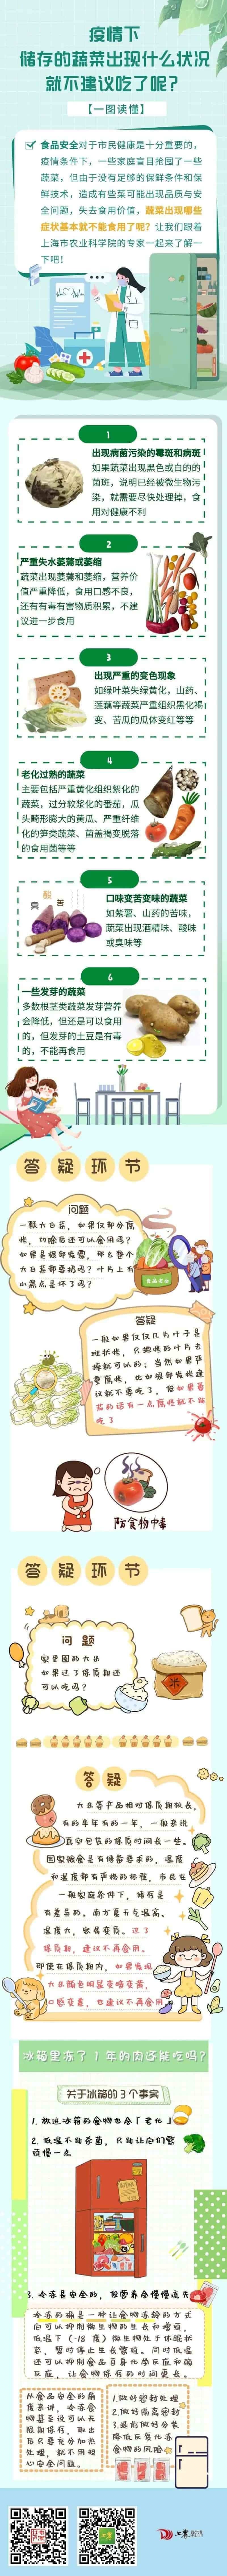 疫情下
储存的蔬菜出现什么状况
就不建议吃了呢?
【一图读懂】
食品安全对于市民健康是十分重要的,
疫情条件下,一些家庭盲目抢囤了一些
蔬菜,但由于没有足够的保鲜条件和保
鲜技术,造成有些菜可能出现品质与安
全问题,失去食用价值,蔬菜出现哪些
症状基本就不能食用了呢?让我们跟着
上海市农业科学院的专家一起来了解一
下吧!
1
出现病菌污染的霉斑和病斑
如果蔬菜出现黑色或白的的
菌斑,说明已经被微生物污
染,就需要尽快处理掉,食
用对健康不利
2
严重失水萎蔫或萎缩
蔬菜出现萎蔫和萎缩,营养价
值严重降低,食用口感不良,
还有有毒有害物质积累,不建
议进一步食用
3
出现严重的变色现象
如绿叶菜失绿黄化,山药、
莲藕等蔬菜严重组织黑化褐
变、苦瓜的瓜体变红等等
4
老化过熟的蔬菜
主要包括严重黄化组织絮化的
蔬菜,过分软浆化的番茄,瓜
头畸形膨大的黄瓜、严重纤维
化的笋类蔬菜、菌盖褐变脱落
的食用菌等等
5
口味变苦变味的蔬菜
如紫薯、山药的苦味,
蔬菜出现酒精味、酸味
或臭味等
臭
酸
苦
6
一些发芽的蔬菜
多数根茎类蔬菜发芽营养
会降低,但还是可以食用
的,但发芽的土豆是有毒
的,不能再食用
答疑环节
问题
一颗大白菜,如果仅部分腐
烂,切除后还可以食用吗?
如果是根部发霉,那么整个
大白菜都要扔吗?叶片上有
小黑点是坏了吗?
答疑
一般如果仅仅几片叶子是
斑状烂,只把烂的叶片去
掉就可以的;当然如果严
重腐烂,比如根部发烂建
议就不要吃了,但如果番
茄的话有一点腐烂就不能
吃了
防食物中毒
答疑环节
问题
家里囤的大米
如果过了保质期还
可以吃吗?
米
答疑
大米等产品相对保质期较长,
有的半年有的一年,一般来说
真空包装的保质时间长一些。
国家粮食是有储备要求的,温度
和湿度都有严格的标准,市民在
一般家庭条件下,储存是
有差异的。南方夏天气温高、
湿度大,容易变质。过了
保质期,建议不再食用。
即便在保质期内,如果发现
大米颜色明显变暗变黄,
口感变差,也建议不再食用
冰箱里冻了1年的肉还能吃吗?
关于冰箱的3个事实
1.放进冰箱的食物也会「老化」
2.低温不能杀菌,只能让它们繁
殖慢一点
3.冷冻是安全的,但营养会慢慢流失
冷冻的确是一种让食物冻龄的方式
它可以抑制微生物的生长和增殖,
低温下(-18度)微生物处于休眠状
态,暂时停止生长繁殖。同时低温
还可以抑制食品自身化学反应和酶
反应,让食物保存的时间更长。
从食品安全的角
度来讲,冷冻食
物甚至说可以无
限期保存,取出
后只要充分加热
处理,就不用担
心安全问题。
1.做好密封处理
2.做好隔离密封
3.提前做好分装
降低反复化冻
食物的风险